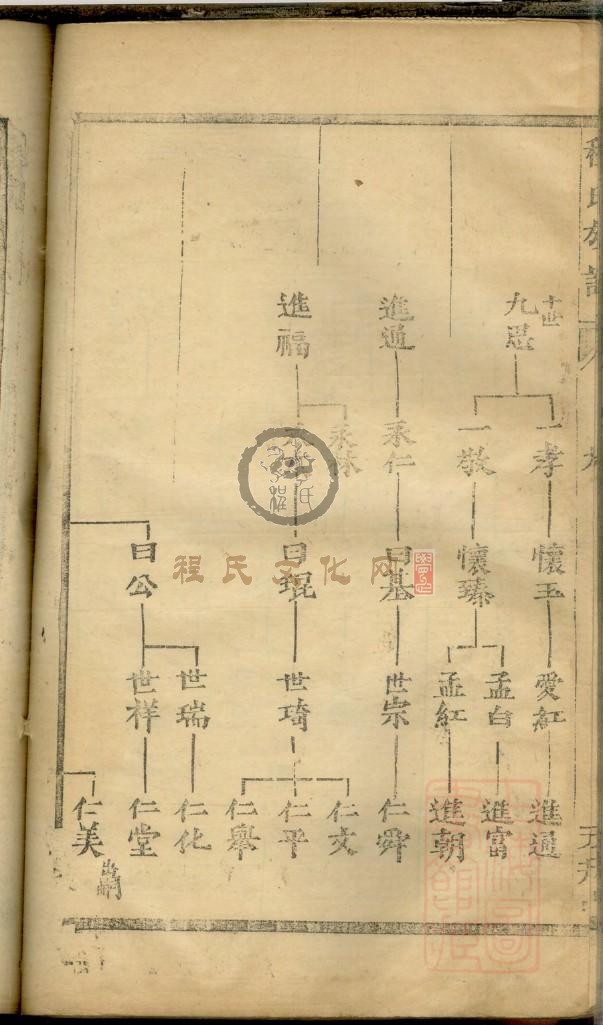 程氏族譜
九思
進通
進福
一孝
一敬
承仁
承林
懷玉
懷臻
曰基
曰琨
曰公
愛紅
孟白
孟紅
世宗
世琦
世瑞
世祥
進通
進富
進朝
仁舜
仁文
仁平
仁舉
仁化
仁堂
仁美
程氏文化网